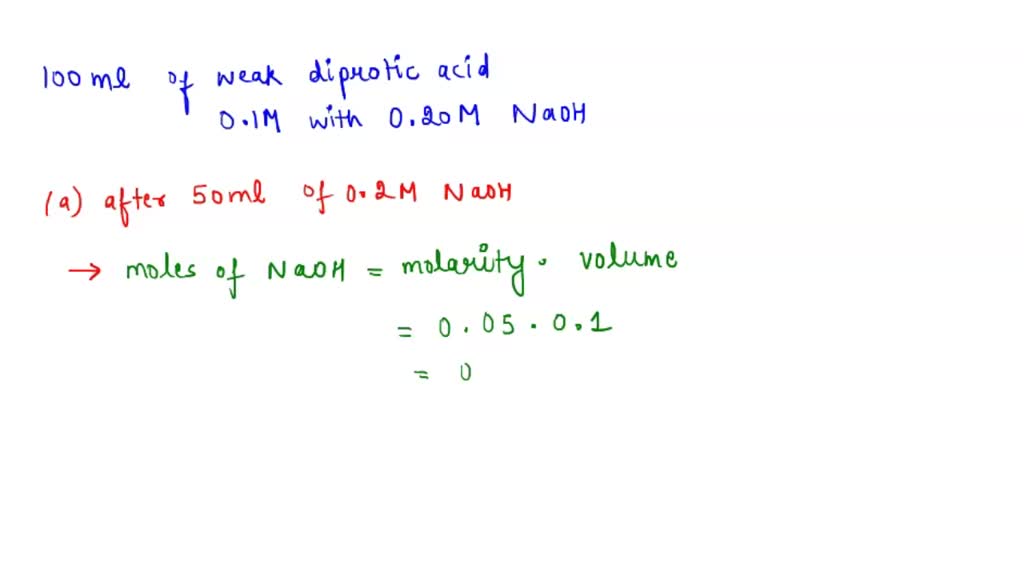 100 ml of weak diprotic acid
0.1M with 0.20M NaOH
(a) after 50ml of 0.2M NaOH
→ moles of NaOH = molarity . volume
= 0.05 . 0.1
= 0